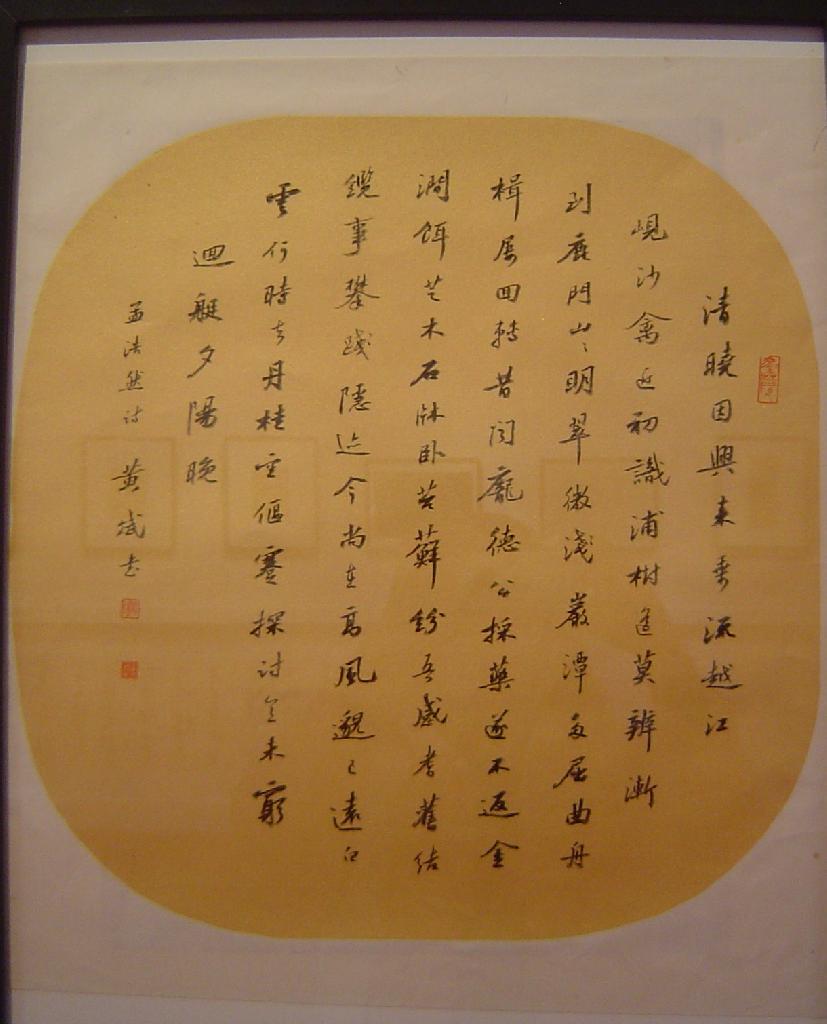 清曉因興来乘流越江
峴沙禽近初識浦樹遥莫辨漸
到鹿門山々明翠微淺巖潭多屈曲舟
楫屡回轉昔聞龐德公採藥遂不返金
澗餌芝木石牀卧苔蘚紛吾感耆舊結
纜事攀踐隱迹今尚在高風邈已遠白
雲何時去丹桂空偃蹇探討意未窮
迴艇夕陽晚
孟浩然詩 黄斌书